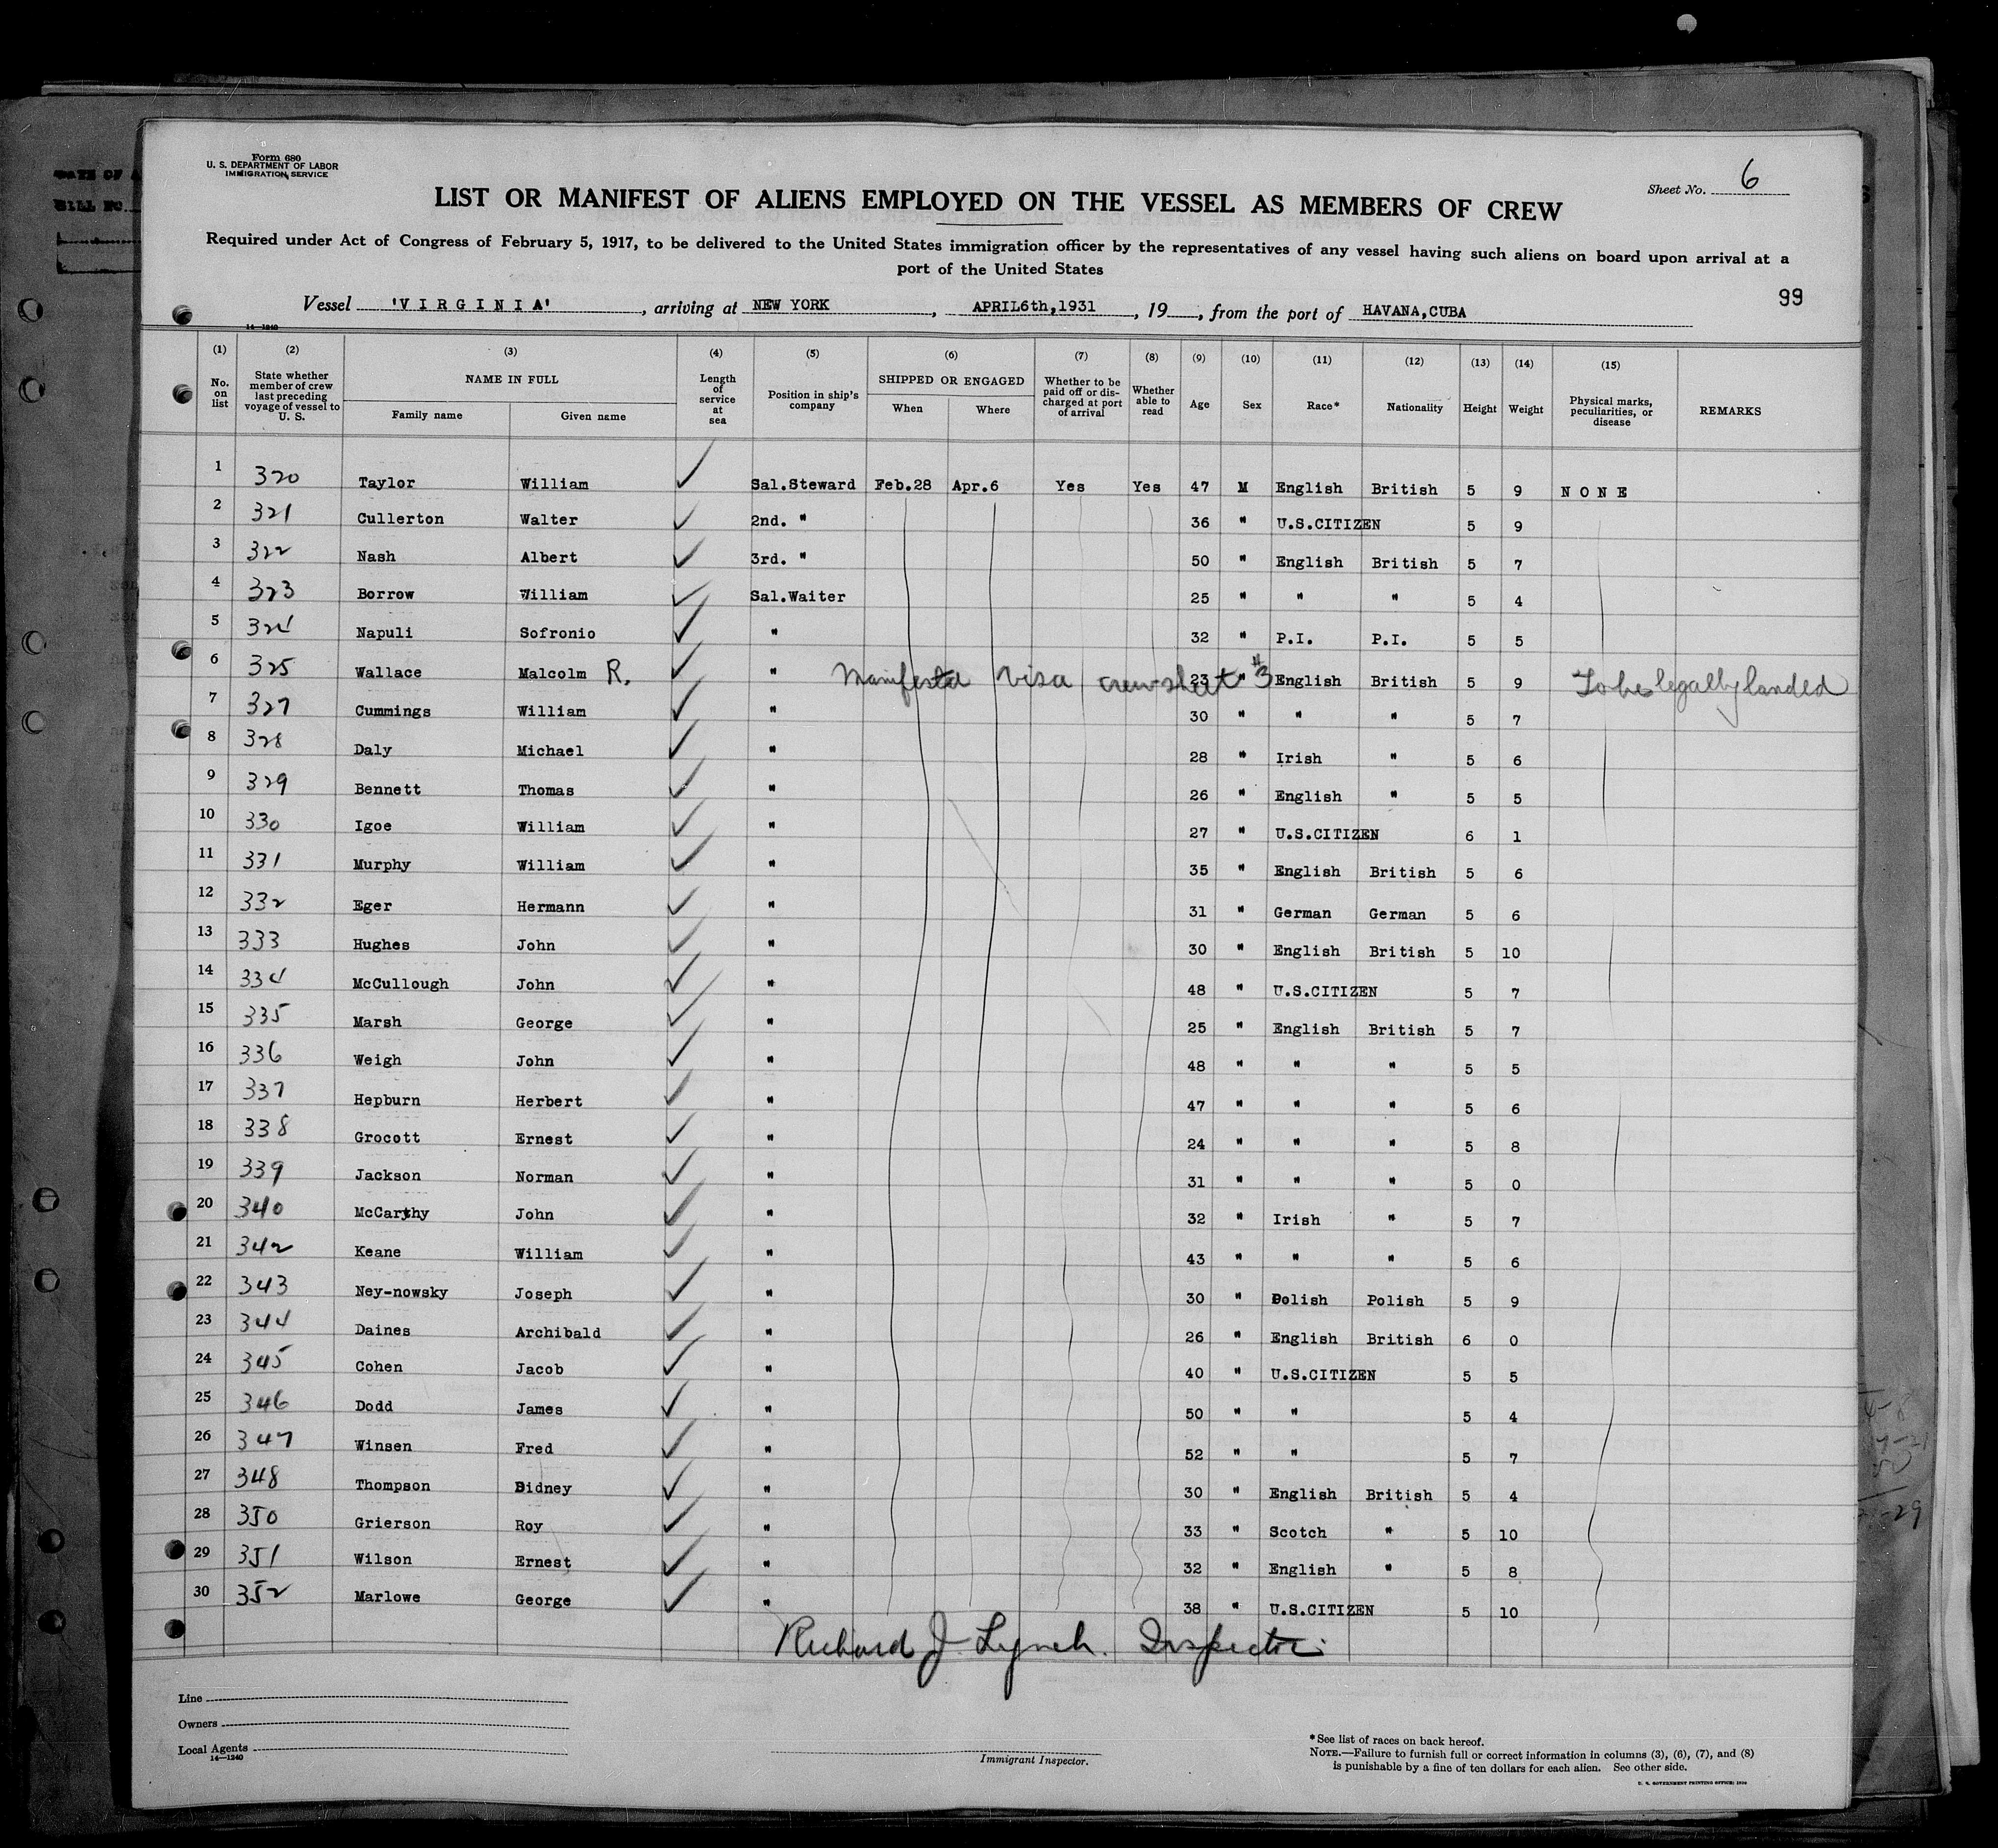 Form 680
U. S. DEPARTMENT OF LABOR
IMMIGRATION SERVICE
Sheet No. 6
LIST OR MANIFEST OF ALIENS EMPLOYED ON THE VESSEL AS MEMBERS OF CREW
Required under Act of Congress of February 5, 1917, to be delivered to the United States immigration officer by the representatives of any vessel having such aliens on board upon arrival at a
port of the United States
99
Vessel 'VIRGINIA', arriving at NEW YORK, APRIL6th,1931, 19, from the port of HAVANA,CUBA
14—1240
(1) (2) (3) (4) (5) (6) (7) (8) (9) (10) (11) (12) (13) (14) (15)
No. on list State whether member of crew last preceding voyage of vessel to U. S. NAME IN FULL Family name Given name Length of service at sea Position in ship's company SHIPPED OR ENGAGED When Where Whether to be paid off or discharged at port of arrival Whether able to read Age Sex Race* Nationality Height Weight Physical marks, peculiarities, or disease REMARKS
1 320 Taylor William ✓ Sal.Steward Feb.28 Apr.6 Yes Yes 47 M English British 5 9 NONE
2 321 Cullerton Walter ✓ 2nd. " 36 " U.S.CITIZEN 5 9
3 322 Nash Albert ✓ 3rd. " 50 " English British 5 7
4 323 Borrow William ✓ Sal.Waiter 25 " " " 5 4
5 324 Napuli Sofronio ✓ " 32 " P.I. P.I. 5 5
6 325 Wallace Malcolm R. ✓ " Manifested Visa crew sheet #3 23 " English British 5 9 To be legally landed
7 327 Cummings William ✓ " 30 " " " 5 7
8 328 Daly Michael ✓ " 28 " Irish " 5 6
9 329 Bennett Thomas ✓ " 26 " English " 5 5
10 330 Igoe William ✓ " 27 " U.S.CITIZEN 6 1
11 331 Murphy William ✓ " 35 " English British 5 6
12 332 Eger Hermann ✓ " 31 " German German 5 6
13 333 Hughes John ✓ " 30 " English British 5 10
14 334 McCullough John ✓ " 48 " U.S.CITIZEN 5 7
15 335 Marsh George ✓ " 25 " English British 5 7
16 336 Weigh John ✓ " 48 " " " 5 5
17 337 Hepburn Herbert ✓ " 47 " " " 5 6
18 338 Grocott Ernest ✓ " 24 " " " 5 8
19 339 Jackson Norman ✓ " 31 " " " 5 0
20 340 McCarthy John ✓ " 32 " Irish " 5 7
21 342 Keane William ✓ " 43 " " " 5 6
22 343 Ney-nowsky Joseph ✓ " 30 " Polish Polish 5 9
23 344 Daines Archibald ✓ " 26 " English British 6 0
24 345 Cohen Jacob ✓ " 40 " U.S.CITIZEN 5 5
25 346 Dodd James ✓ " 50 " " 5 4
26 347 Winsen Fred ✓ " 52 " " 5 7
27 348 Thompson Sidney ✓ " 30 " English British 5 4
28 350 Grierson Roy ✓ " 33 " Scotch " 5 10
29 351 Wilson Ernest ✓ " 32 " English " 5 8
30 352 Marlowe George ✓ " 38 " U.S.CITIZEN 5 10
Richard J. Lynch. Inspector.
Line
Owners
Local Agents
14—1240
Immigrant Inspector.
*See list of races on back hereof.
NOTE.—Failure to furnish full or correct information in columns (3), (6), (7), and (8)
is punishable by a fine of ten dollars for each alien. See other side.